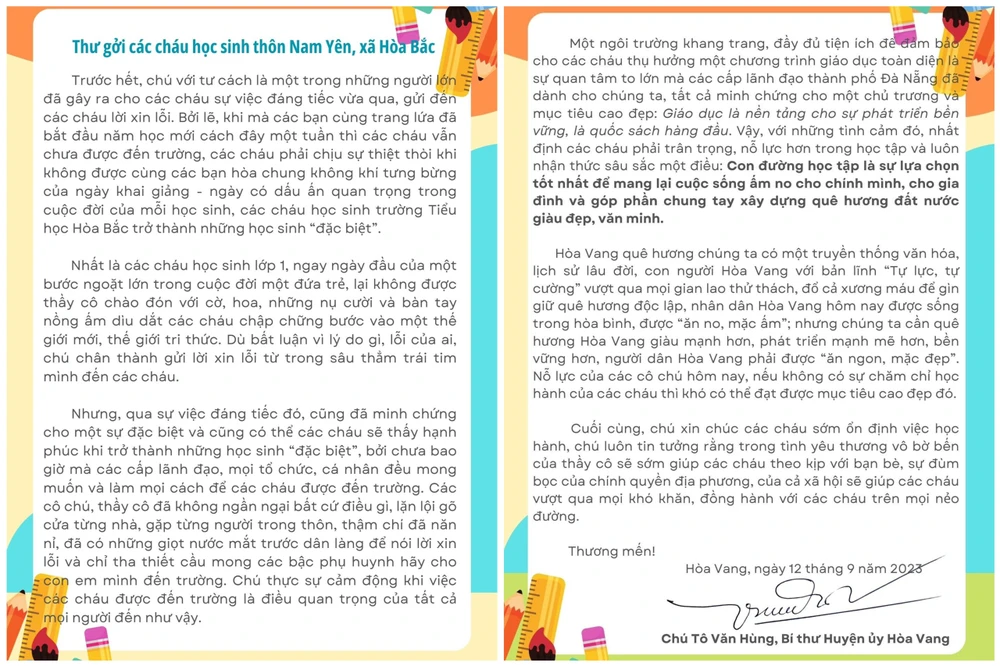 Thư gởi các cháu học sinh thôn Nam Yên, xã Hòa Bắc
Trước hết, chú với tư cách là một trong những người lớn
đã gây ra cho các cháu sự việc đáng tiếc vừa qua, gửi đến
các cháu lời xin lỗi. Bởi lẽ, khi mà các bạn cùng trang lứa đã
bắt đầu năm học mới cách đây một tuần thì các cháu vẫn
chưa được đến trường, các cháu phải chịu sự thiệt thòi khi
không được cùng các bạn hòa chung không khí tưng bừng
của ngày khai giảng - ngày có dấu ấn quan trọng trong
cuộc đời của mỗi học sinh, các cháu học sinh trường Tiểu
học Hòa Bắc trở thành những học sinh “đặc biệt”.
Nhất là các cháu học sinh lớp 1, ngay ngày đầu của một
bước ngoặt lớn trong cuộc đời một đứa trẻ, lại không được
thầy cô chào đón với cờ, hoa, những nụ cười và bàn tay
nồng ấm dìu dắt các cháu chập chững bước vào một thế
giới mới, thế giới tri thức. Dù bất luận vì lý do gì, lỗi của ai,
chú chân thành gửi lời xin lỗi từ trong sâu thẳm trái tim
mình đến các cháu.
Nhưng, qua sự việc đáng tiếc đó, cũng đã minh chứng
cho một sự đặc biệt và cũng có thể các cháu sẽ thấy hạnh
phúc khi trở thành những học sinh “đặc biệt”, bởi chưa bao
giờ mà các cấp lãnh đạo, mọi tổ chức, cá nhân đều mong
muốn và làm mọi cách để các cháu được đến trường. Các
cô chú, thầy cô đã không ngần ngại bất cứ điều gì, lặn lội gõ
cửa từng nhà, gặp từng người trong thôn, thậm chí đã năn
nỉ, đã có những giọt nước mắt trước dân làng để nói lời xin
lỗi và chỉ tha thiết cầu mong các bậc phụ huynh hãy cho
con em mình đến trường. Chú thực sự cảm động khi việc
các cháu được đến trường là điều quan trọng của tất cả
mọi người đến như vậy.
Một ngôi trường khang trang, đầy đủ tiện ích để đảm bảo
cho các cháu thụ hưởng một chương trình giáo dục toàn diện là
sự quan tâm to lớn mà các cấp lãnh đạo thành phố Đà Nẵng đã
dành cho chúng ta, tất cả minh chứng cho một chủ trương và
mục tiêu cao đẹp: Giáo dục là nền tảng cho sự phát triển bền
vững, là quốc sách hàng đầu. Vậy, với những tình cảm đó, nhất
định các cháu phải trân trọng, nỗ lực hơn trong học tập và luôn
nhận thức sâu sắc một điều: Con đường học tập là sự lựa chọn
tốt nhất để mang lại cuộc sống ấm no cho chính mình, cho gia
đình và góp phần chung tay xây dựng quê hương đất nước
giàu đẹp, văn minh.
Hòa Vang quê hương chúng ta có một truyền thống văn hóa,
lịch sử lâu đời, con người Hòa Vang với bản lĩnh “Tự lực, tự
cường” vượt qua mọi gian lao thử thách, đổ cả xương máu để gìn
giữ quê hương độc lập, nhân dân Hòa Vang hôm nay được sống
trong hòa bình, được “ăn no, mặc ấm”; nhưng chúng ta cần quê
hương Hòa Vang giàu mạnh hơn, phát triển mạnh mẽ hơn, bền
vững hơn, người dân Hòa Vang phải được “ăn ngon, mặc đẹp”.
Nỗ lực của các cô chú hôm nay, nếu không có sự chăm chỉ học
hành của các cháu thì khó có thể đạt được mục tiêu cao đẹp đó.
Cuối cùng, chú xin chúc các cháu sớm ổn định việc học
hành, chú luôn tin tưởng rằng trong tình yêu thương vô bờ bến
của thầy cô sẽ sớm giúp các cháu theo kịp với bạn bè, sự đùm
bọc của chính quyền địa phương, của cả xã hội sẽ giúp các cháu
vượt qua mọi khó khăn, đồng hành với các cháu trên mọi nẻo
đường.
Thương mến!
Hòa Vang, ngày 12 tháng 9 năm 2023
Chú Tô Văn Hùng, Bí thư Huyện ủy Hòa Vang